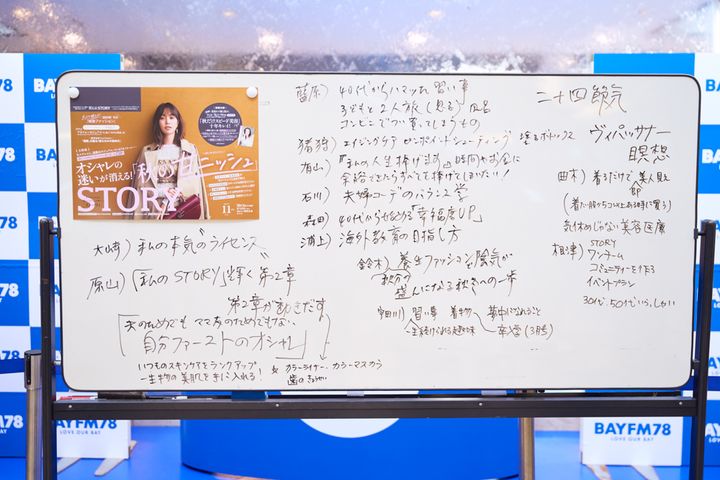 BAYFM78
BAYFM78
オシャレの
迷いが消える!
「秋のミニッシュ」
STORY
11
大崎) 私の本気の"ライセンス"
原山) 「私のSTORY」輝く第2章
第2章が動きだす
夫のためでも ママ友のためでもない
「自分ファーストのオシャレ」
いつものスキンケアをランクアップ
一生物の美肌を手に入れる!
& カラーライナー、カラーマスカラ
藍原) 40代からハマッた習い事
子どもと2人旅(怒る)
コンビニでつい買ってしまうもの
猪狩) エイジングケア ピンポイントシューティング 塗るボトックス
有山) 「私の人生捧げます」時間やお金に
余裕できたらすべてを捧げてしまいたい!
石川 夫婦コーデのバランス学
森田 40代から始める「幸福度UP」
浦上) 海外教育の目指し方
鈴木) 養生ファッション 陰気が
秋分の
盛んになる秋冬への一歩
宇田川) 習い事 着物 夢中になれること
一生続けられる趣味 卒堂(3月号)
二十四節気
ヴィパッサナー
瞑想
曲木) 着るだけで美人見え
即
(着た服から3つ以上ある時に買う)
気休めじゃない美容医療
相津) STORY
ワンチーム
コミュニティーを作る
イベントプラン
30代、50代いらっしゃい
BAYFM78
LOVE OUR BAY
BAYFM78
LOVE OUR BAY